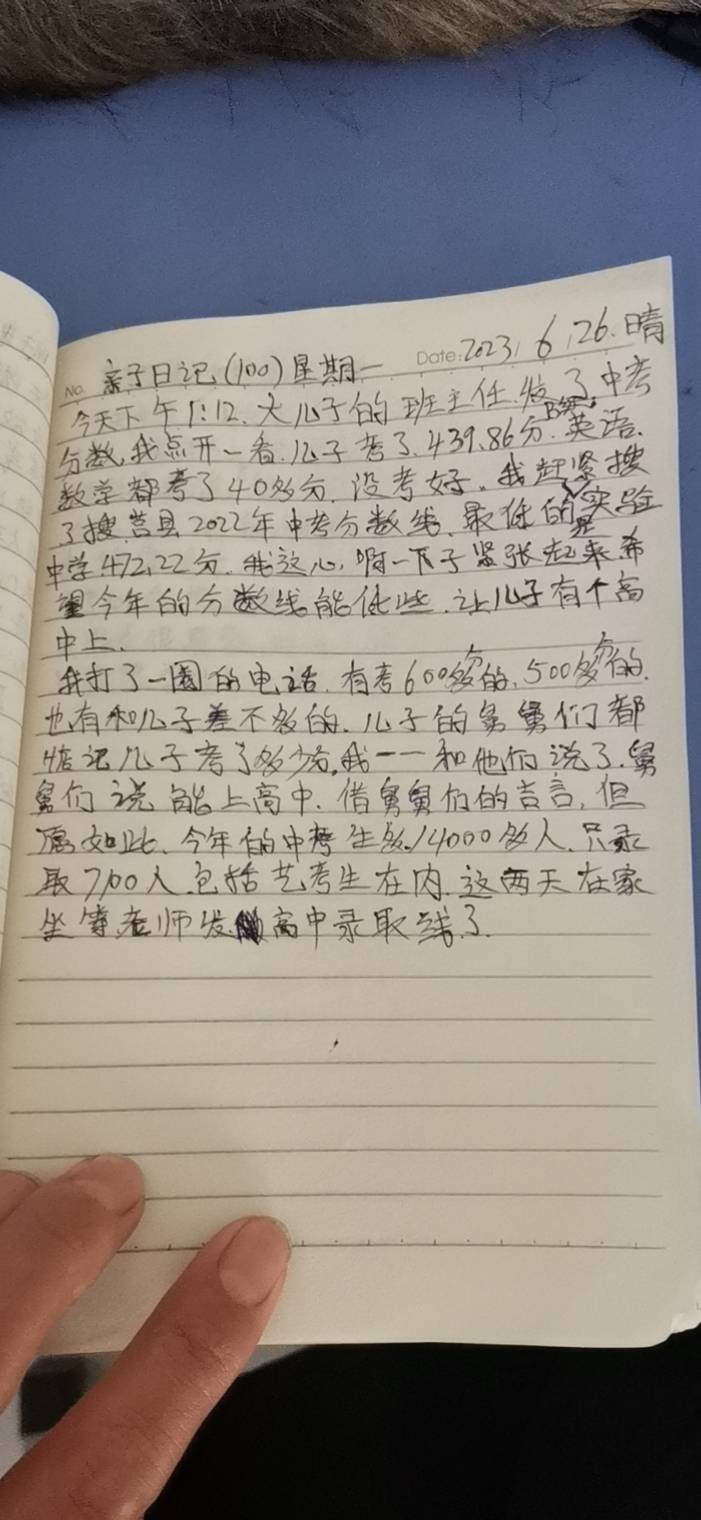 No. 亲子日记(100)星期一 Date:2023.6.26.晴
今天下午1:12.大儿子的班主任.发了中考
分数,我点开一看.儿子考了.439.86分.英语.
数学都考了40多分.没考好.我赶紧搜
了搜莒县2022年中考分数线.最低的是实验
中学472.22分.我这心,啊一下子紧张起来希
望今年的分数线能低些.让儿子有个高
中上.
我打了一圈的电话.有考600多分的.500多分的.
也有和儿子差不多的.儿子的舅舅们都
惦记儿子考了多少分.我一一和他们说了.舅
舅们说能上高中.借舅舅们的吉言,但
愿如此.今年的中考生多.14000多人.只录
取7100人.包括艺考生在内.这两天在家
坐等老师发高中录取线了.